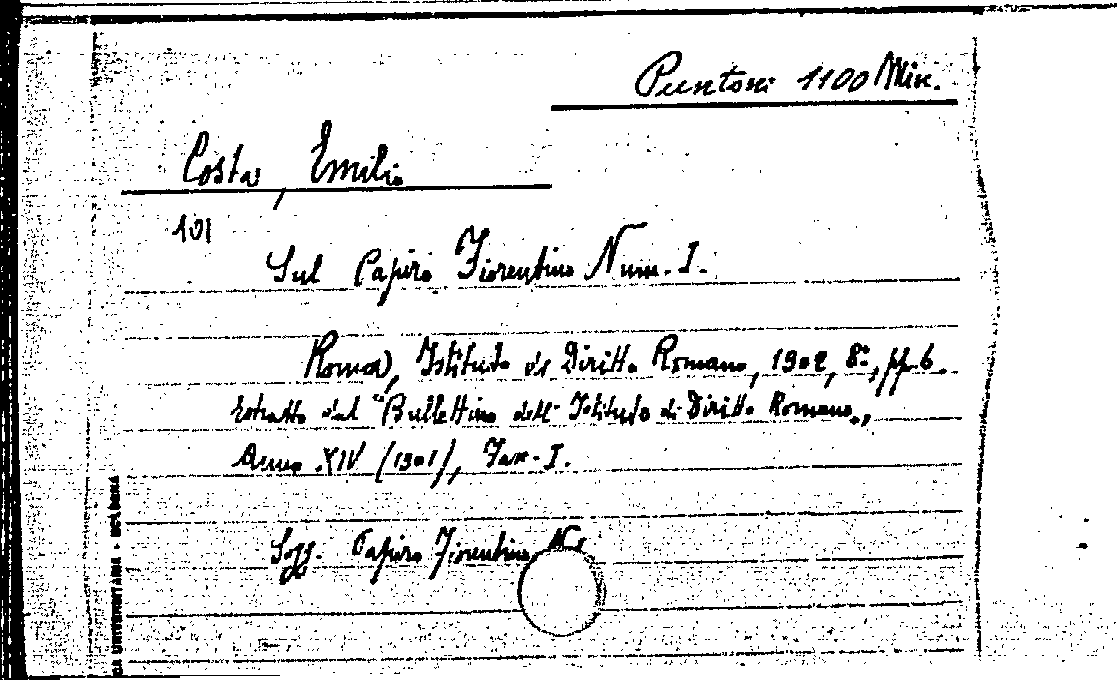 Puntoni 1100 Min.
Costa, Emilio
101
Sul Papiro Fiorentino Num. I.
Roma, Istituto di Diritto Romano, 1902, 8º, pp. 6.
Estratto dal "Bullettino dell'Istituto di Diritto Romano",
Anno XIV (1901), Fasc. I.
Sogg. Papiro Fiorentino N. 1
CA UNIVERSITARIA - BOLOGNA